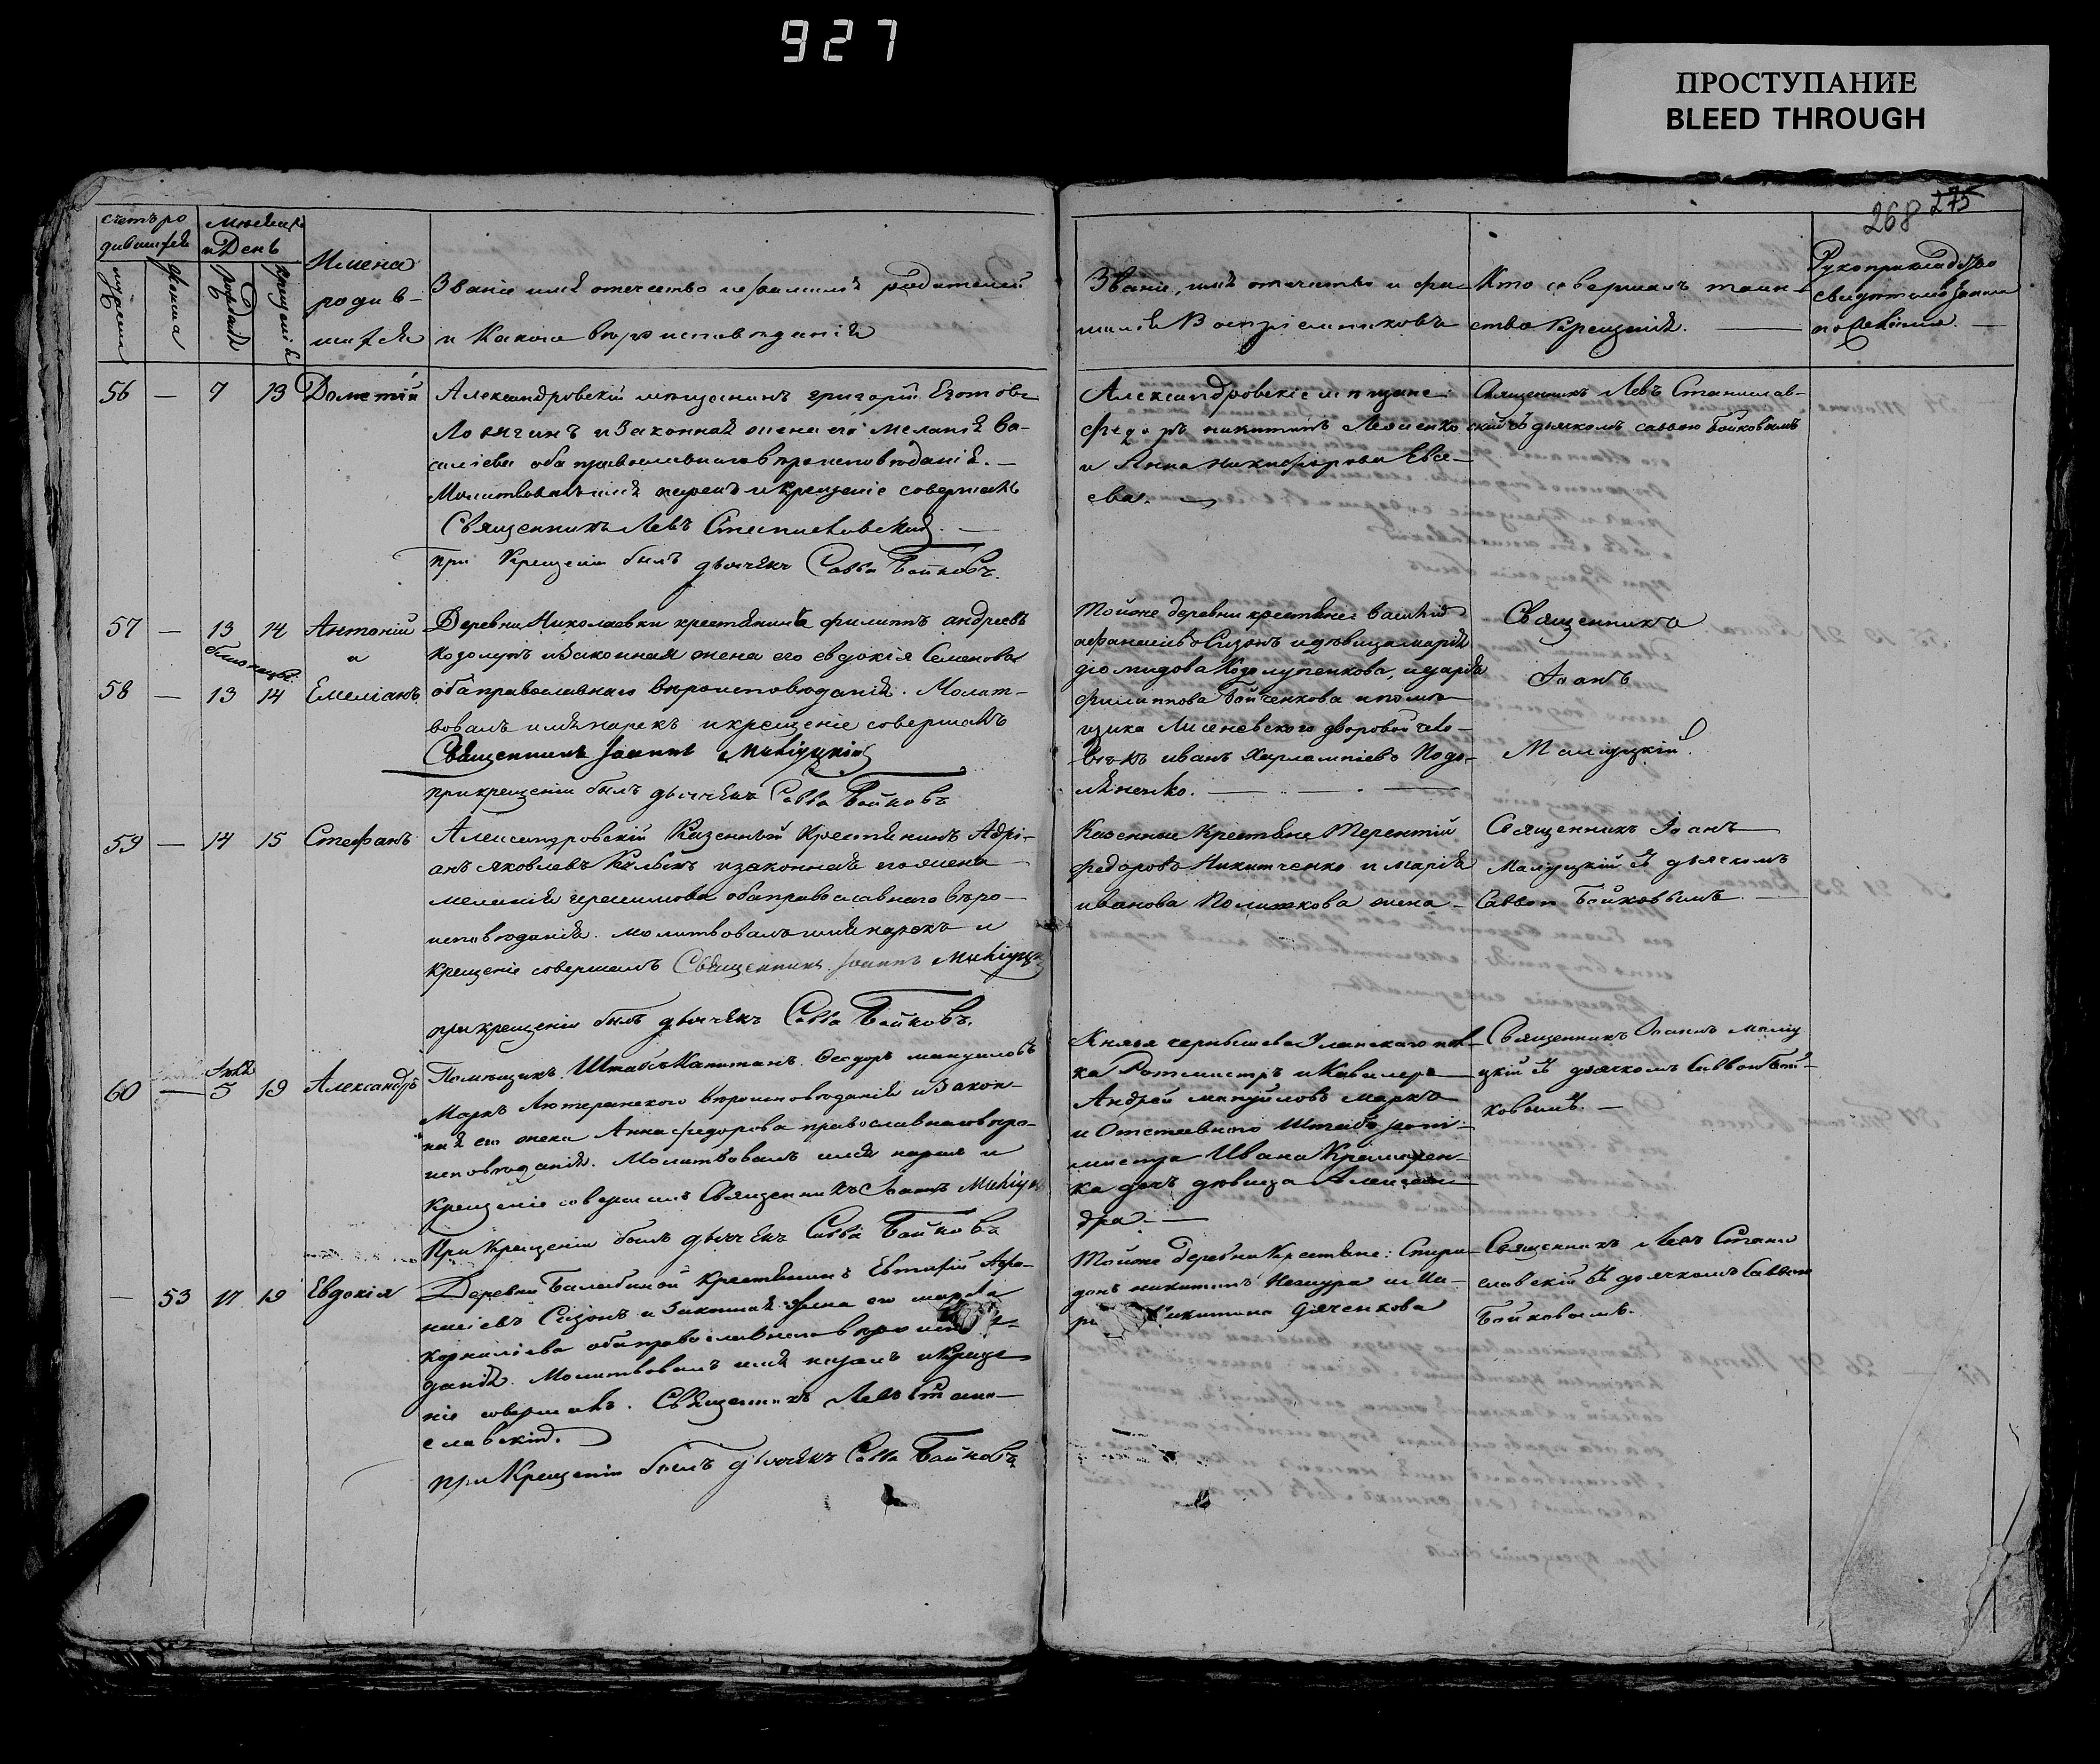 927
ПРОСТУПАНИЕ
BLEED THROUGH
268 275
счетъ ро
дившихся
мужеска
женска
Мѣсяцъ
и День
рожденія
крещенія
Имена
родив-
шихся
Званіе имя отечество и фамилія родителей
и Какого вѣроисповѣданія
Званіе, имя отечество и фа-
милія Воспріемниковъ
Кто совершалъ таин-
ство Крещенія.
Рукоприкладство
свидѣтелей записи
по желанію.
56 — 7 13 Дометій
Александровскій мѣщанинъ григорій
и Законная жена его меланія Ва-
силіева оба православнаго вѣроисповѣданія. —
Молитвовалъ имя нарекъ и крещеніе совершалъ
Священникъ Левъ Станиславскій. —
при Крещеніи былъ дьячекъ Савва Бойковъ.
Александровскіе мѣщане
федоръ никитинъ
и Анна никифорова Евсе-
ева. —
Священникъ Левъ Станислав-
скій съ дьячкомъ саввою бойковымъ
57 — 13 14 Антоній
и
близнецы
58 — 13 14 Емеліанъ
Деревни Николаевки крестьянинъ филиппъ андреевъ
козолупъ и Законная жена его евдокія Семенова
оба православнаго вѣроисповѣданія. Молит-
вовалъ имя нарекъ и крещеніе совершалъ
Священникъ Іоаннъ
при крещеніи былъ дьячекъ Савва Бойковъ
Тойже деревни крестьяне василій
афанасіевъ Сизонъ и дѣвица марія
діомидова Козолупенкова, и дарія
филиппова Бойченкова и помѣ-
щика дворовой чело-
вѣкъ иванъ Харлампіевъ Подо-
ляненко. —
Священникъ
Іоанъ
59 — 14 15 Стефанъ
Александровскій Казенный Крестьянинъ Адрі-
анъ яковлевъ и законная его жена
меланія герасимова оба православнаго вѣро-
исповѣданія. молитвовалъ имя нарекъ и
крещеніе совершалъ Священникъ Іоаннъ
при крещеніи былъ дьячекъ Савва Бойковъ.
Казенные Крестьяне Терентій
федоровъ Никитченко и марія
иванова жена —
Священникъ Іоанъ
съ дьячкомъ
Саввою Бойковымъ. —
60 — 5 19 Александръ
Помѣщикъ Штабсъ Капитанъ Феодоръ мануиловъ
Маркъ Лютеранскаго вѣроисповѣданія и Закон-
ная его жена Анна федорова православнаго вѣро-
исповѣданія. Молитвовалъ имя нарекъ и
Крещеніе совершалъ Священникъ Іоаннъ
При Крещеніи былъ дьячекъ Савва Бойковъ
Князя чернышева Уланскаго пол-
ка Ротмистръ и Кавалеръ
Андрей мануйловъ маркъ
и Отставнаго Штабсъ рот-
мистра Ивана
ка дочь дѣвица Алексан-
дра. —
Священникъ Іоаннъ
цкій съ дьячкомъ Саввою Бой-
ковымъ. —
— 53 17 19 Евдокія
Деревни Балабиной Крестьянинъ Евтихій Афа-
насіевъ Сизонъ и Законная жена его
корниліева оба православнаго
данія. Молитвовалъ имя нарекъ и Креще-
ніе совершалъ. Священникъ Левъ Стани-
славскій.
при Крещеніи былъ дьячекъ Савва Бойковъ
Тойже деревни Крестьяне: Спири-
донъ никитинъ
никитина дяченкова
Священникъ Левъ Стани-
славскій съ дьячкомъ Саввою
Бойковымъ.